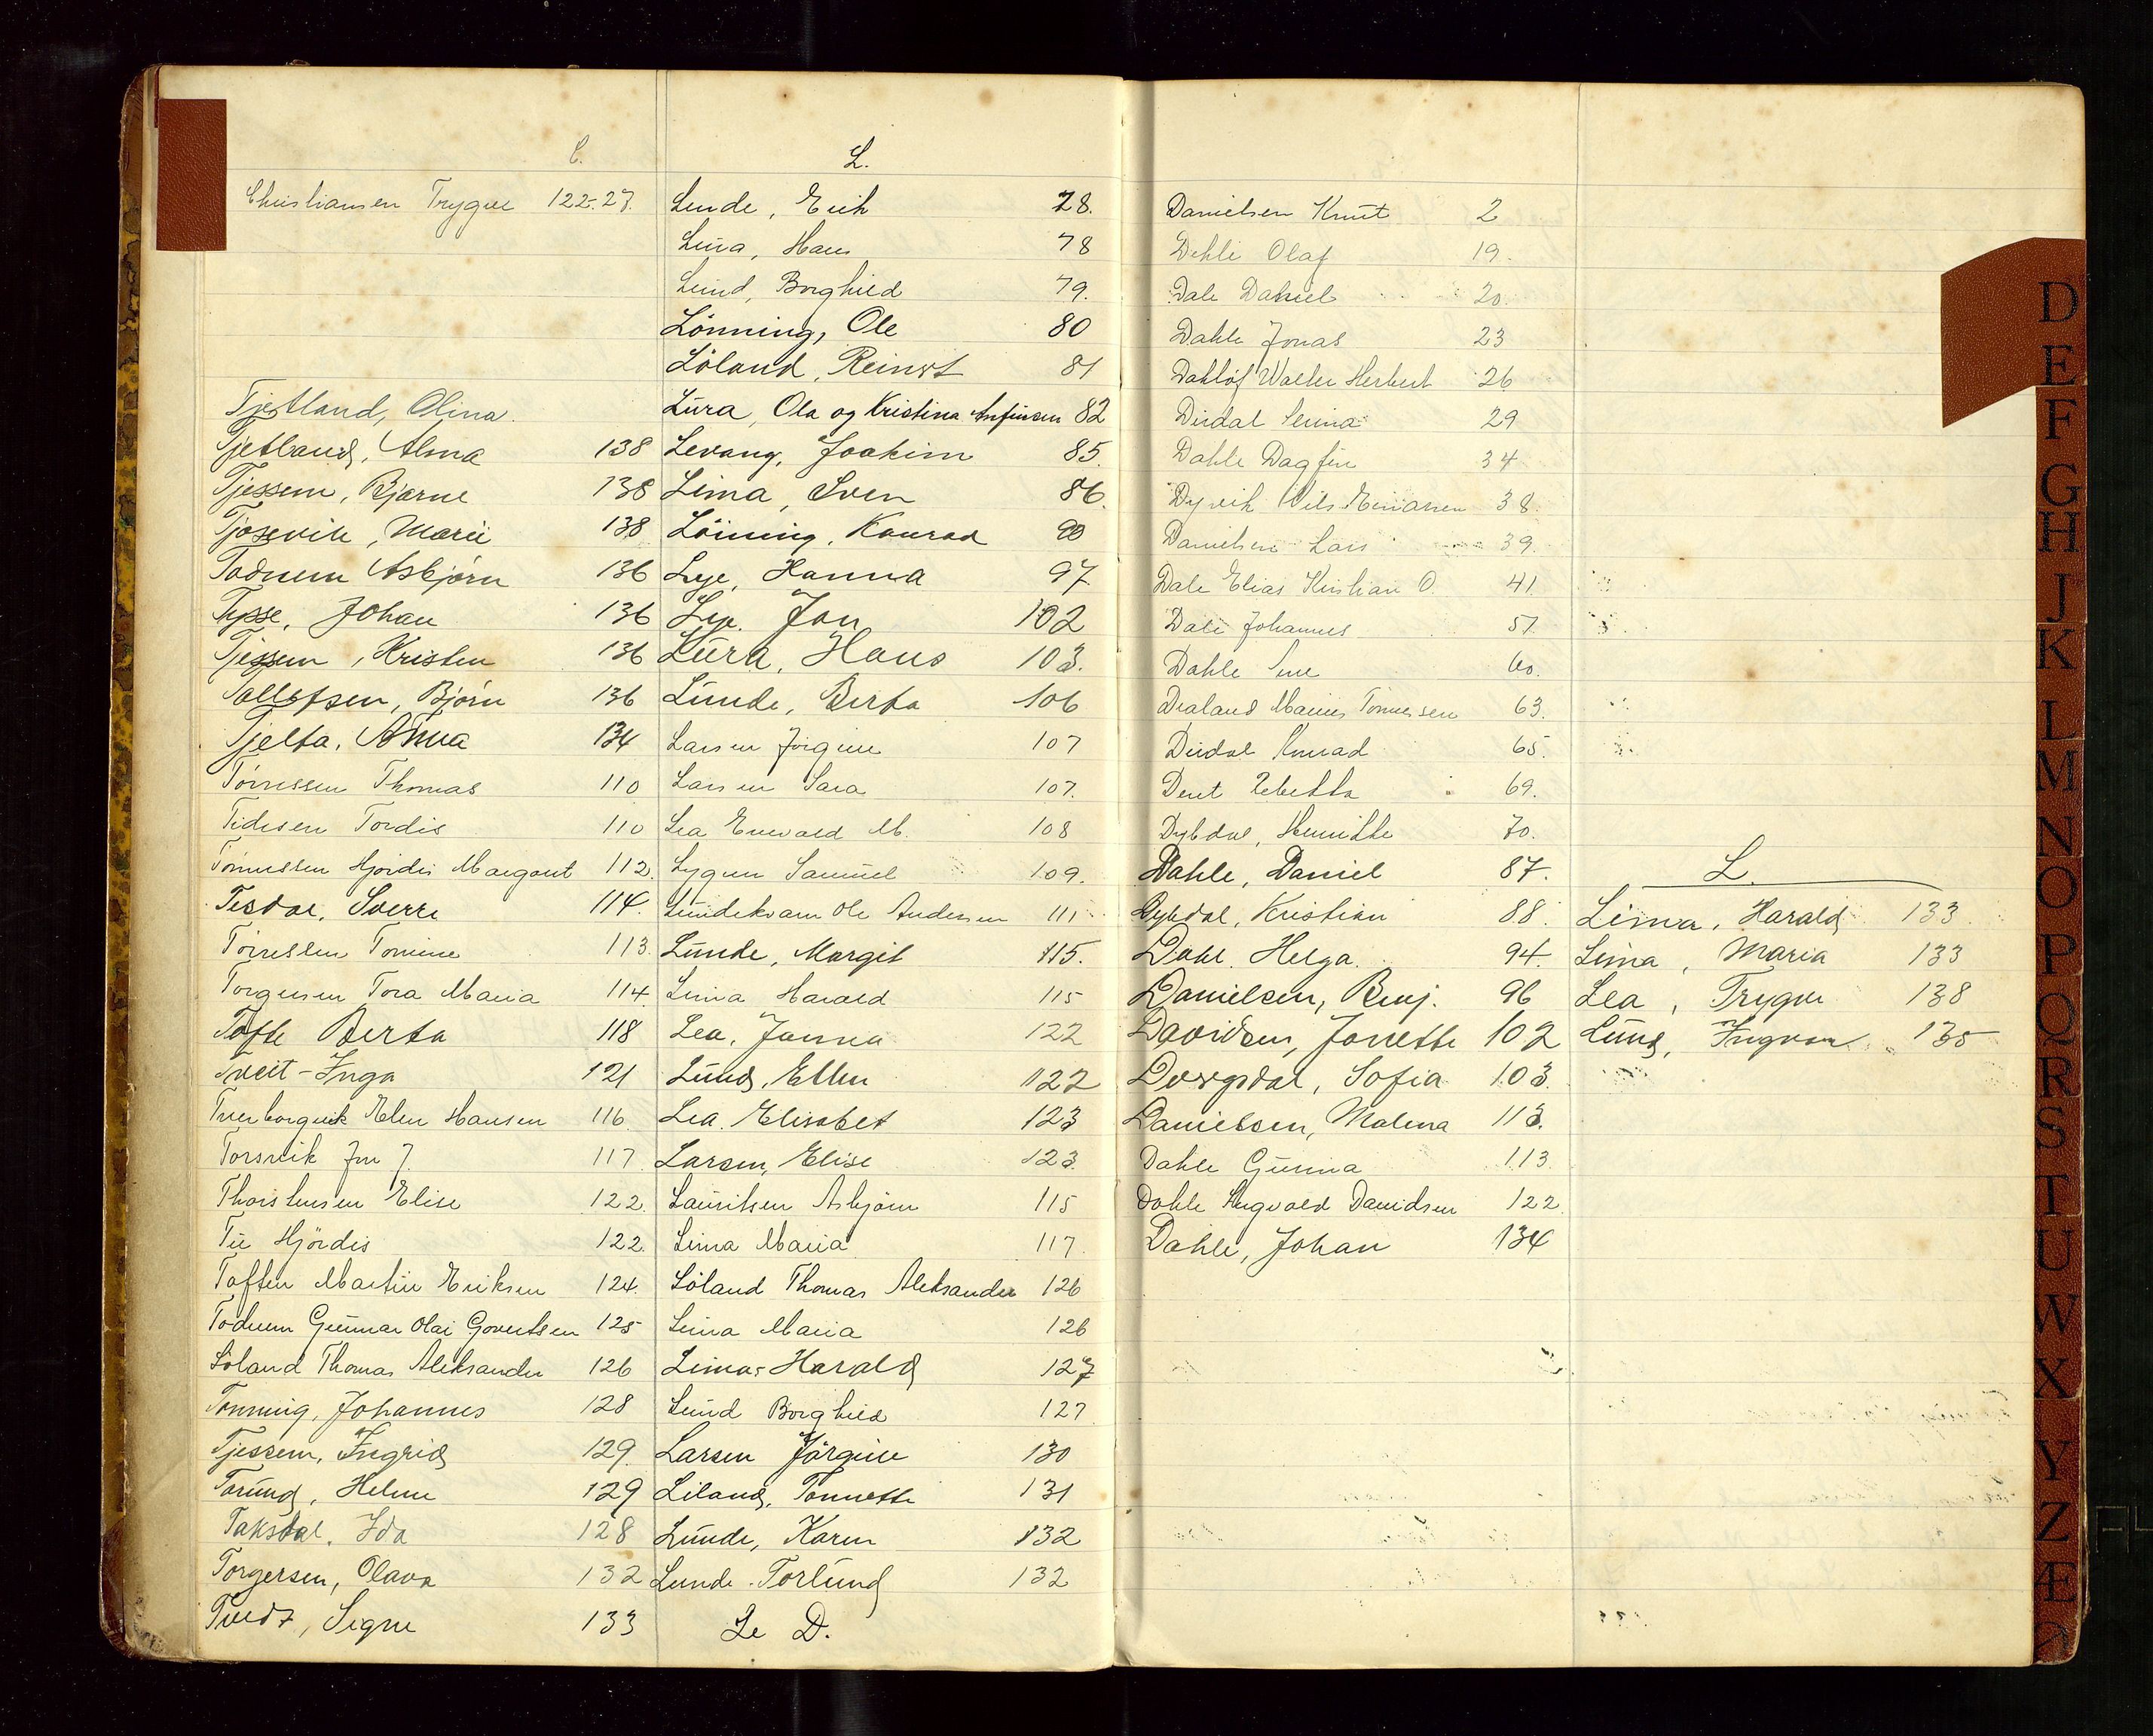 C.
Christiansen Trygve 122-27.
Tjetland, Olina.
Tjetland, Alma 138
Tjessem, Bjarne 138
Tjosevik, Marie 138
Todnem Asbjörn 136
Tysse, Johan 136
Tjessem, Kristen 136
Tollefsen, Björn 136
Tjelta, Anna 134
Törressen Thomas 110
Tidesen Tordis 110
Tönnessen Hjördis Margaret 112.
Tesdal, Sverre 114.
Törressen Tomine 113.
Torgersen Tora Maria 114
Tofte Berta 118
Tveit-Inga 121
Tverborgvik Elen Hansen 116.
Torsvik Jon J. 117
Thorstensen Elise 122.
Tu Hjördis 122
Toften Martin Eriksen 124.
Todnem Gunnar Olai Govertsen 125
Löland Thomas Aleksander 126
Tonning, Johannes 128
Tjessem, Ingrid 129.
Torund, Helene 129
Taksdal, Ida 128
Torgersen, Olava 132
Tvedt, Signe 133
L.
Lende, Erik 78.
Lura, Hans 78
Lund, Borghild 79.
Lönning, Ole 80
Löland, Reinert 81
Lura, Ola og Kristina Anfinsen 82
Levang, Joakim 85.
Lima, Sven 86.
Löining, Konrad 90
Lye, Hanna 97
Lye, Jon 102
Lura, Hans 103.
Lunde, Berta 106
Larsen Jörgine 107
Larsen Sara 107.
Lea Enevald M. 108
Lygren Samuel 109.
Lundekvam Ole Andersen 111
Lunde, Margit 115.
Lima Harald 115
Lea, Janna 122
Lund, Ellen 122
Lea. Elisabet 123
Larsen, Elise 123
Lauritsen Asbjörn 115
Lima Maria 117.
Löland Thomas Aleksander 126
Lima Maria 126
Lima, Harald 127
Lund Borghild 127
Larsen Jörgine 130
Liland, Tonnette 131
Lunde, Karen 132
Lunde. Torlund 132
Se D.
Danielsen Knut 2
Dehli Olaf 19.
Dale Daniel 20.
Dahle Jonas 23
Dahlöf Walter Herbert 26
Dirdal Serina 29
Dahle Dagfin 34
Dyvik Nils Einarsen 38.
Danielsen Lars 39.
Dale Elias Kristian O. 41.
Dale Johannes 57.
Dahle Sine 60.
Draland Marius Tönnessen 63.
Dirdal Konrad 65.
Dent Rebekka 69.
Dybdal, Henrikke 70.
Dahle, Daniel 87.
Dybdal, Kristian 88.
Dahl. Helga. 94.
Danielsen, Benj. 96
Davidsen, Jonette 102
Dorgsdal, Sofia 103
Danielsen, Malena 113.
Dahle Gunna 113
Dahle Ingvald Davidsen 122.
Dahle, Johan 134
L.
Lima, Harald 133
Lima, Maria 133
Lea, Trygve 138
Lund, Ingvar 135
D
E
F
G
H
J
K
L
M
N
O
P
Q
R
S
T
U
W
X
Y
Z
Æ